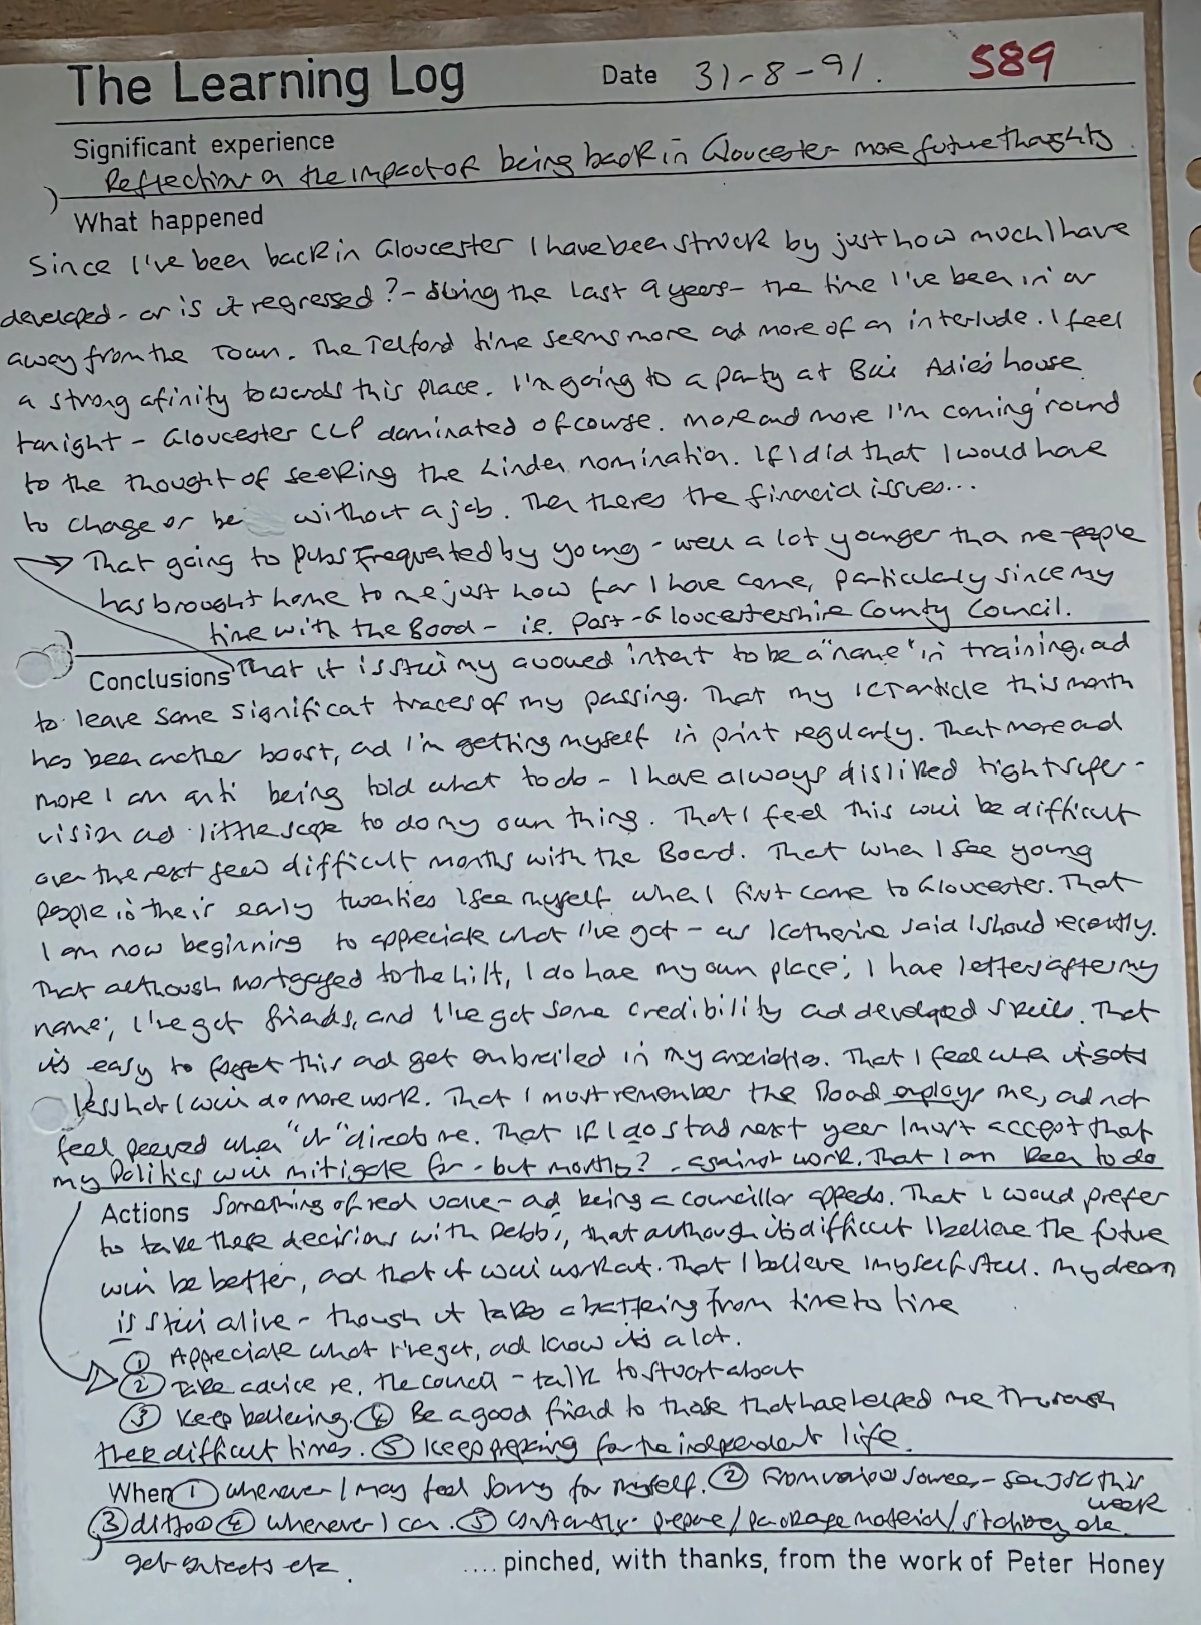 The Learning Log Date 31-8-91. 589
Significant experience
Reflection on the impact of being back in Gloucester - more future thoughts.
What happened
Since I've been back in Gloucester I have been struck by just how much I have
developed - or is it regressed? - during the last 9 years - the time I've been in or
away from the Town. The Telford time seems more ad more of an interlude. I feel
a strong afinity towards this place. I'm going to a party at Bill Adie's house
tonight - Gloucester CLP dominated of course. More and more I'm coming 'round
to the thought of seeking the Linden nomination. If I did that I would have
to change or be without a job. Then theres the financial issues...
That going to pubs frequented by young - well a lot younger than me - people
has brought home to me just how far I have come, particularly since my
time with the Board - i.e. Post-Gloucestershire County Council.
Conclusions That it is still my avowed intent to be a "name" in training, ad
to leave some significat traces of my passing. That my ICT article this month
has been another boost, ad I'm getting myself in print regularly. That more ad
more I am anti being told what to do - I have always disliked tight super-
vision ad little scope to do my own thing. That I feel this will be difficult
over the next few difficult months with the Board. That when I see young
people in their early twenties I see myself when I first came to Gloucester. That
I am now beginning to appreciate what I've got - as Katherine said I should recently.
That although mortgaged to the hilt, I do have my own place; I have letters after my
name; I've got friends, and I've got some credibility ad developed skills. That
its easy to forget this ad get embroiled in my anxieties. That I feel when it gets
less hot I will do more work. That I must remember the Board employs me, ad not
feel peeved when "it" directs me. That if I do stad next year I must accept that
my Politics will mitigate for - but mostly? - against work. That I am keen to do
Actions Something of real value - ad being a councillor appeals. That I would prefer
to take these decisions with Debbi, that although its difficult I believe the future
will be better, ad that it will work out. That I believe in myself still. My dream
is still alive - though it takes a battering from time to time
① Appreciate what I've got, ad know its a lot.
② Take advice re. the council - talk to Stuart about
③ Keep believing. ④ Be a good friend to those that has helped me through
these difficult times. ⑤ Keep preparing for the independent life.
When ① whenever I may feel sorry for myself. ② From various sources - this
week
③ ditto ④ whenever I can. ⑤ Constantly - prepare/package material/ etc.
get etc. .... pinched, with thanks, from the work of Peter Honey